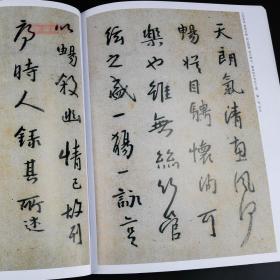 天朗氣清惠風和
暢娱目騁懷洵可
樂也雖無絲竹管
絃之盛一觴一詠亦
以暢敘幽情已故列
序時人錄其所述